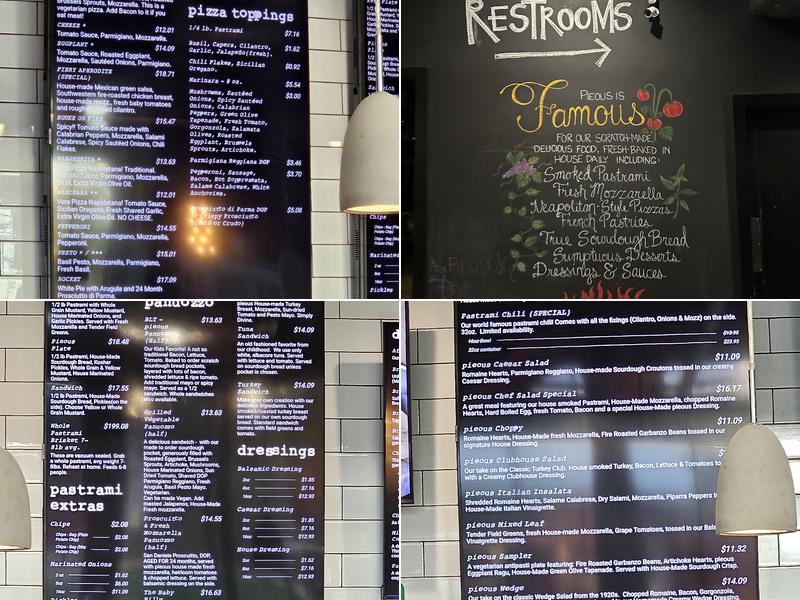 vegetarian pizza. Add Bacon to it if you
eat meat!!
CHEESE * $12.01
Tomato Sauce, Parmigiano, Mozzarella.
EGGPLANT * $14.09
Tomato Sauce, Roasted Eggplant,
Mozzarella, Sautéed Onions, Parmigiano.
FIERY APHRODITE $18.71
(SPECIAL)
House-made Mexican green salsa,
Southwestern fire-roasted chicken breast,
house-made mozz, fresh baby tomatoes
and rough-chopped cilantro.
HOUSE ON FIRE $15.47
Spicy!! Tomato Sauce made with
Calabrian Peppers, Mozzarella, Salami
Calabrese, Spicy Sautéed Onions, Chili
Flakes.
MARGHERITA * $13.63
Vera Pizza Napoletana! Traditional.
Tomato Sauce, Parmigiano, Mozzarella,
Basil, Extra Virgin Olive Oil.
MARINARA ** $12.01
Vera Pizza Napoletana! Tomato Sauce,
Sicilian Oregano, Fresh Shaved Garlic,
Extra Virgin Olive Oil. NO CHEESE.
PEPPERONI $14.55
Tomato Sauce, Parmigiano, Mozzarella,
Pepperoni.
PESTO * / *** $15.01
Basil Pesto, Mozzarella, Parmigiano,
Fresh Basil.
ROCKET $17.09
White Pie with Arugula and 24 Month
Prosciutto di Parma.
pizza toppings
1/4 lb. Pastrami $7.16
Basil, Capers, Cilantro, $1.62
Garlic, Jalapeño(fresh).
Chili Flakes, Sicilian $0.92
Oregano.
Marinara - 8 oz. $5.54
Mushrooms, Sautéed $3.00
Onions, Spicy Sautéed
Onions, Calabrian
Peppers, Green Olive
Tapenade, Fresh Tomato,
Gorgonzola, Kalamata
Olives, Roasted
Eggplant, Brussels
Sprouts, Artichoke.
Parmigiana Reggiana DOP $3.46
Pepperoni, Sausage, $3.70
Bacon, Hot Soppresata,
Salame Calabrese, White
Anchovies.
Prosciutto di Parma DOP $5.08
or Crispy Prosciutto
(Cotto or Crudo)
Chips
Marinated
Pickles
RESTROOMS
PIEOUS IS
Famous
FOR OUR SCRATCH-MADE,
DELICIOUS FOOD, FRESH-BAKED IN
HOUSE DAILY. INCLUDING:
Smoked Pastrami
Fresh Mozzarella
Neapolitan-Style Pizzas
French Pastries
True Sourdough Bread
Sumptuous Desserts
Dressings & Sauces
1/2 lb Pastrami with Whole
Grain Mustard, Yellow Mustard,
House Marinated Onions, and
Garlic Pickles. Served with Fresh
Mozzarella and Tender Field
Greens.
Pieous $18.48
Plate
1/2 lb Pastrami, House-Made
Sourdough Bread, Kosher
Pickles, Whole Grain & Yellow
Mustard, House Marinated
Onions.
Sandwich $17.55
1/2 lb Pastrami, House-Made
Sourdough Bread, Pickles(on
the side). Choose Yellow or
Whole Grain Mustard
Whole $199.08
Pastrami
Brisket 7-
8lb avg.
These are vacuum sealed. Grab
a whole pastrami, avg weight 7-
8lbs. Reheat at home. Feeds 6-8
people.
pastrami
extras
Chips $2.08
Chips - Bag (Plain $2.08
Potato Chip)
Chips - Bag (bbq $2.08
Potato Chip)
Marinated Onions
2oz $1.62
8oz $6.00
16oz $11.09
panuozzo
BLT - $13.63
pieous
Panuozzo
(Half)
Our Kids Favorite! A not so
traditional Bacon, Lettuce,
Tomato. Baked to order scratch
sourdough bread pockets,
layered with lots of bacon,
shredded lettuce & ripe tomato.
Add traditional mayo or spicy
mayo. Served as a 1/2
sandwich. Whole sandwiches
also available.
Grilled $13.63
Vegetable
Panuozzo
(half)
A delicious sandwich - with our
made to order sourdough
pocket, generously filled with
Roasted Eggplant, Brussels
Sprouts, Artichoke, Mushrooms,
House Marinated Onions, Sun
Dried Tomato, Shaved DOP
Parmigiano Reggiano, Fresh
Arugula, Basil Pesto Mayo.
Vegetarian.
Can be made Vegan. Add
roasted Jalapenos, House-Made
Fresh mozzarella.
Prosciutto $14.55
& Fresh
Mozzarella
Panuozzo
(half)
San Daniele Prosciutto, DOP,
AGED FOR 24 months, served
with pieous house made fresh
mozzarella, heirloom tomatoes
& chopped lettuce. Served with
balsamic dressing on the side.
The Baby $16.63
pieous House-made Turkey
Breast, Mozzarella, Sun-dried
Tomato and Pesto Mayo. Simply
Divine.
Tuna $14.09
Sandwich
An old fashioned favorite from
our childhood. We use only
white, albacore tuna. Served
with lettuce and tomato. Served
on sourdough bread unless
pocket is chosen.
Turkey $14.09
Sandwich
Make your own creation with our
delicious ingredients. House
smoked/roasted turkey breast
served on our own sourdough
bread. Standard sandwich
comes with field greens and
tomato.
dressings
Balsamic Dressing
2oz $1.85
8oz $7.16
16oz $12.93
Caesar Dressing
2oz $1.85
8oz $7.16
16oz $12.93
House Dressing
2oz $1.62
8oz $7.16
16oz $12.93
Pastrami Chili (SPECIAL)
Our world famous pastrami chili! Comes with all the fixings (Cilantro, Onions & Mozz) on the side.
32oz Limited availability.
16oz Bowl $10.95
32oz container $23.95
pieous Caesar Salad $11.09
Romaine Hearts, Parmigiano Reggiano, House-made Sourdough Croutons tossed in our creamy
Caesar Dressing.
pieous Chef Salad Special $16.17
A great meal featuring our house smoked Pastrami, House-Made Mozzarella, chopped Romaine
Hearts, Hard Boiled Egg, fresh Tomato, Bacon and a special House-made pieous Dressing.
pieous Choppy $11.09
Romaine Hearts, House-Made fresh Mozzarella, Fire Roasted Garbanzo Beans tossed in our
signature House Dressing.
pieous Clubhouse Salad
Our take on the Classic Turkey Club. House smoked Turkey, Bacon, Lettuce & Tomatoes
with a Creamy Clubhouse Dressing.
pieous Italian Insalata
Shredded Romaine Hearts, Salame Calabrese, Dry Salami, Mozzarella, Piparra Peppers
House-Made Italian Vinaigrette.
pieous Mixed Leaf
Tender Field Greens, fresh House-made Mozzarella, Grape Tomatoes, tossed in our
Vinaigrette Dressing.
pieous Sampler $11.32
A vegetarian antipasti plate featuring: Fire Roasted Garbanzo Beans, Artichoke Hearts, pieous
Eggplant Ragu, House-Made Green Olive Tapenade. Served with House-Made Sourdough Crisp.
pieous Wedge $14.09
Our take on the classic Wedge Salad from the 1920s. Chopped Romaine, Bacon, Gorgonzola,